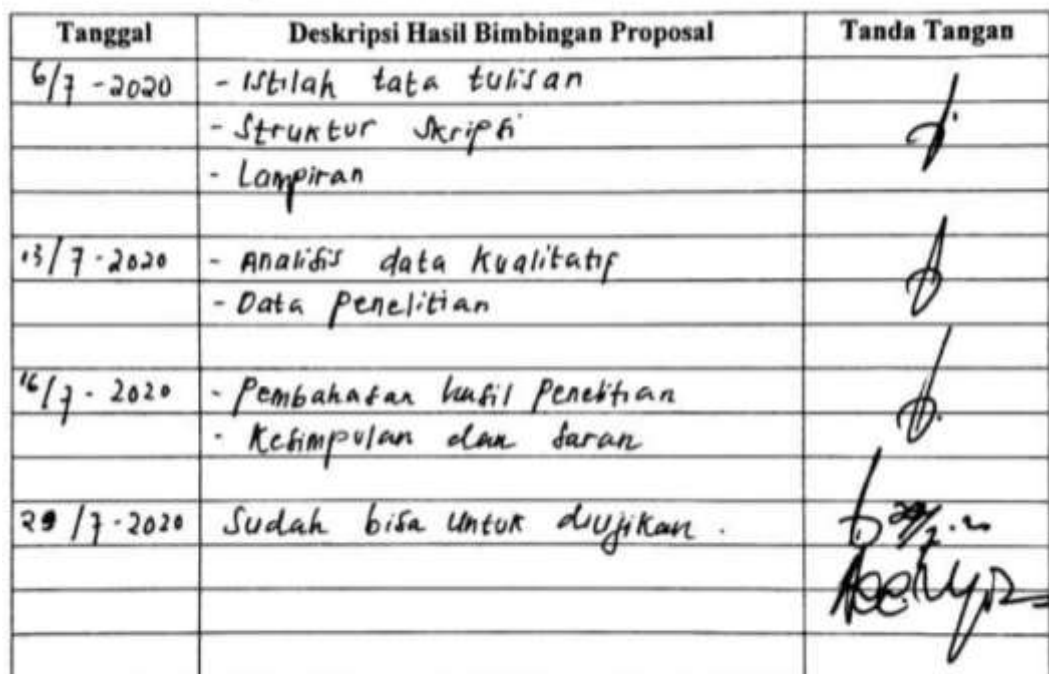 Tanggal Deskripsi Hasil Bimbingan Proposal Tanda Tangan
6/7 - 2020 - Istilah tata tulisan
- Struktur Skripsi
- Lampiran
13/7 - 2020 - Analisis data kualitatif
- Data penelitian
16/7 - 2020 - Pembahasan hasil penelitian
- Kesimpulan dan saran
29/7 - 2020 Sudah bisa untuk diujikan.